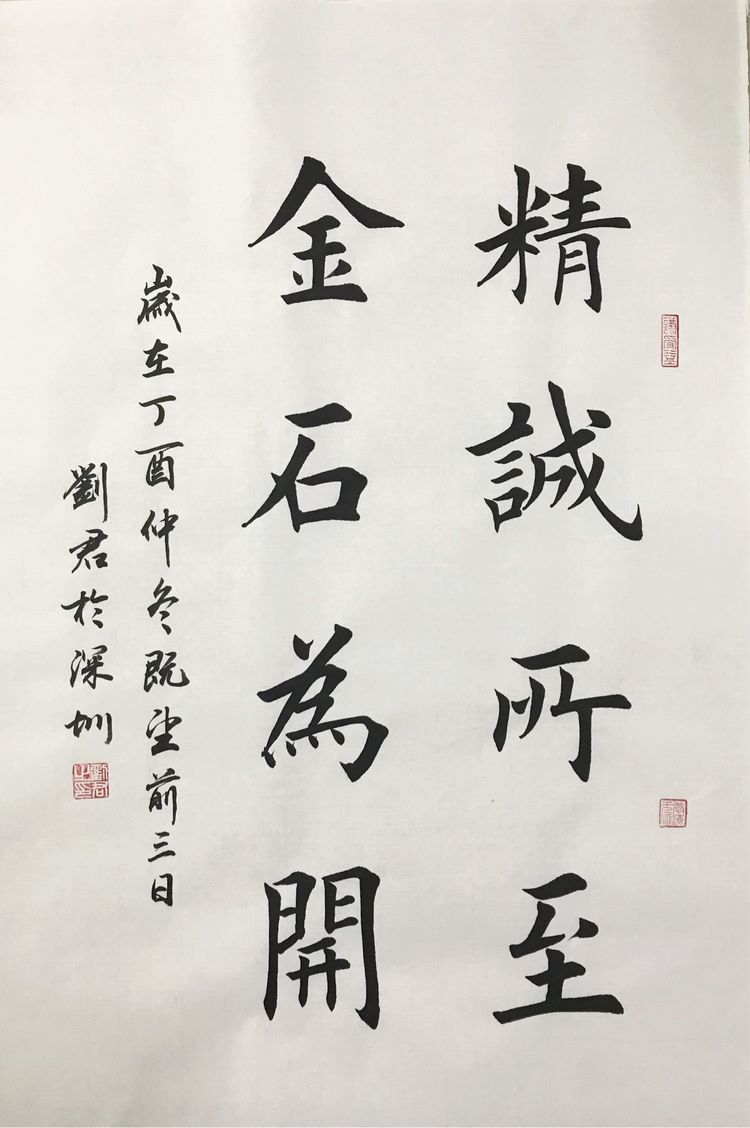 精誠所至
金石為開
歲在丁酉仲冬既望前三日
劉君於深圳